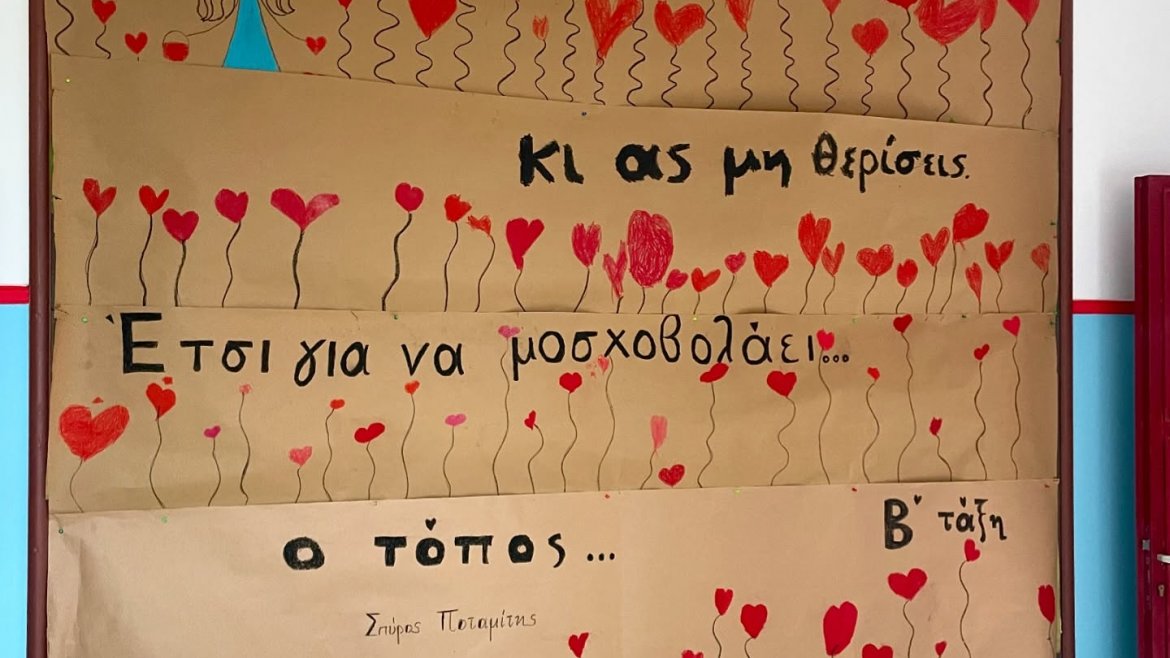 κι ας μη θερίσεις.
Έτσι για να μοσχοβολάει...
ο τόπος...
Β' τάξη
Σπύρος Ποταμίτης